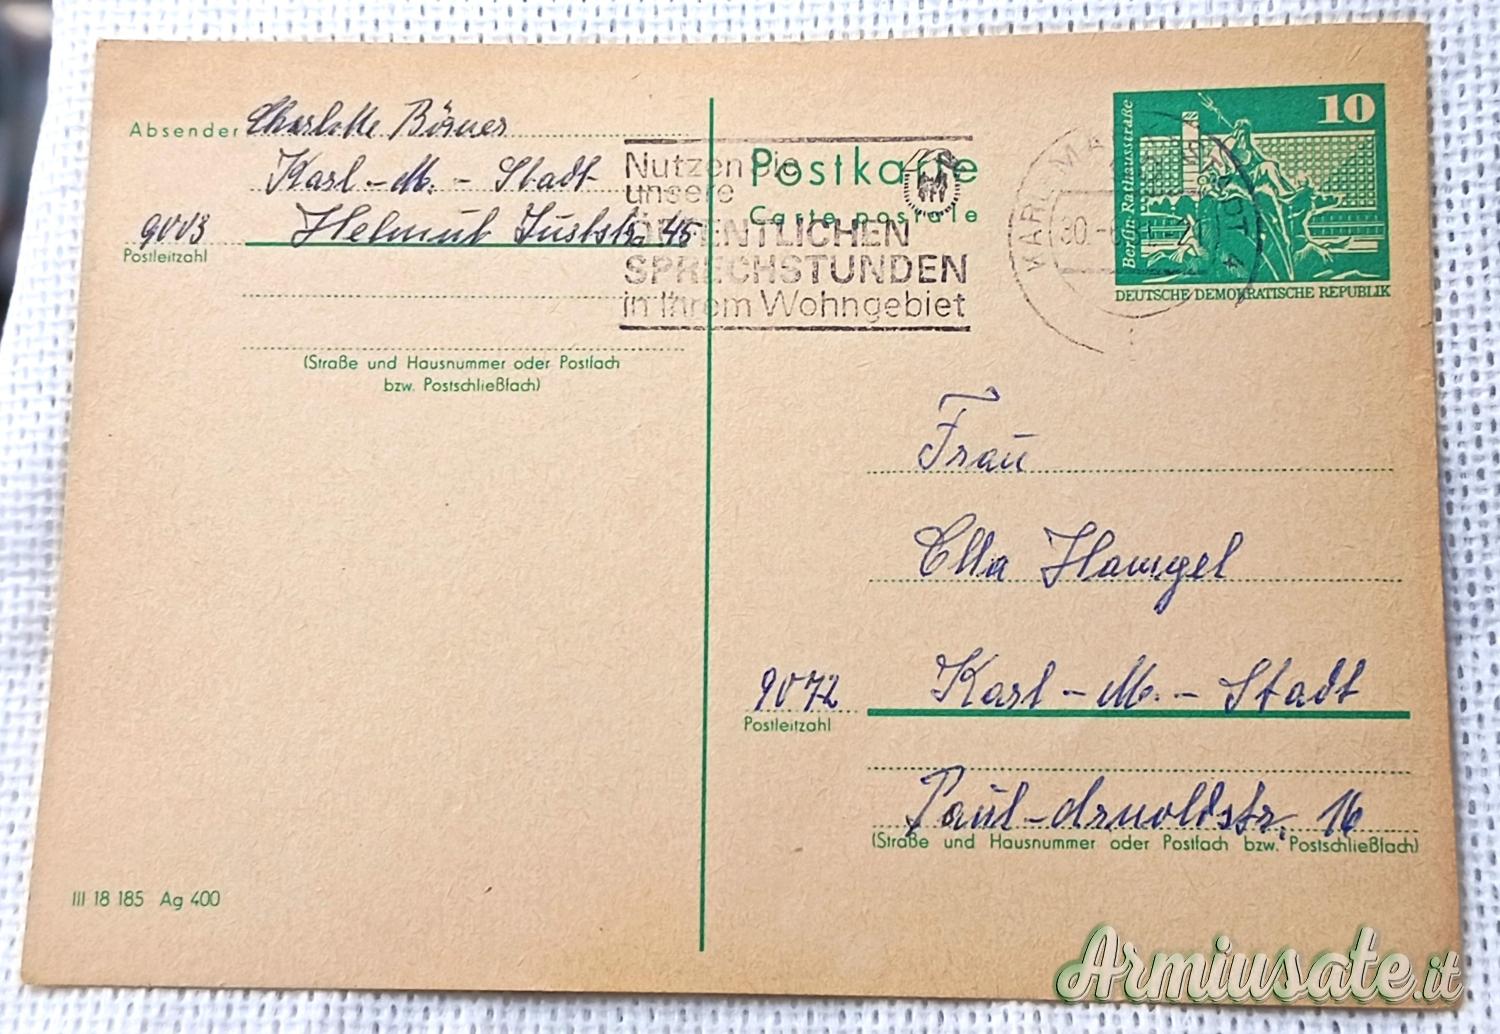 Absender Charlotte Börner
Karl-M.-Stadt
9003 Helmut Juststr. 45
Postleitzahl
(Straße und Hausnummer oder Postfach
bzw. Postschließfach)
Nutzen Sie
unsere
ÖFFENTLICHEN
SPRECHSTUNDEN
in Ihrem Wohngebiet
Postkarte
Carte postale
KARL-MARX-STADT 4
30.-6
10
Berlin, Rathausstraße
DEUTSCHE DEMOKRATISCHE REPUBLIK
Frau
Ella Hampel
9072 Karl-M.-Stadt
Postleitzahl
Paul-Arnoldstr. 16
(Straße und Hausnummer oder Postfach bzw. Postschließfach)
III 18 185 Ag 400
Armiusate.it